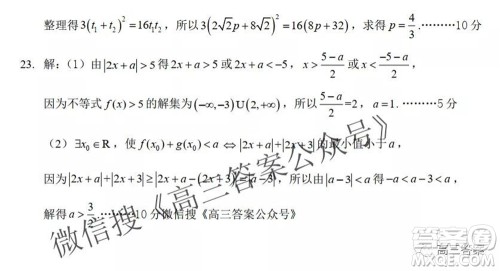 整理得3(t₁+t₂)²=16t₁t₂，所以3(2√2p+8√2)²=16(8p+32)，求得p=4/3.………10分
23. 解：（1）由|2x+a|>5得2x+a>5或2x+a<-5，x>(5-a)/2或x<(-5-a)/2，
因为不等式f(x)>5的解集为(-∞,-3)U(2,+∞)，所以(5-a)/2=2，a=1.………5分
（2）∃x₀∈R，使f(x₀)+g(x₀)<a⇔|2x+a|+|2x+3|的最小值小于a，
因为|2x+a|+|2x+3|≥|2x+a-(2x+3)|=|a-3|，所以|a-3|<a得-a<a-3<a，
解得a>3/2.………10分微信搜《高三答案公众号》
微信搜《高三答案公众号》
高三答案